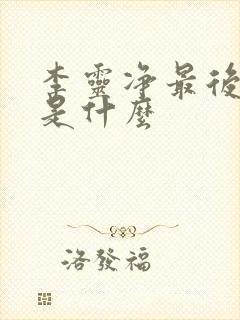 李靈净最後
是什麼
洛發福